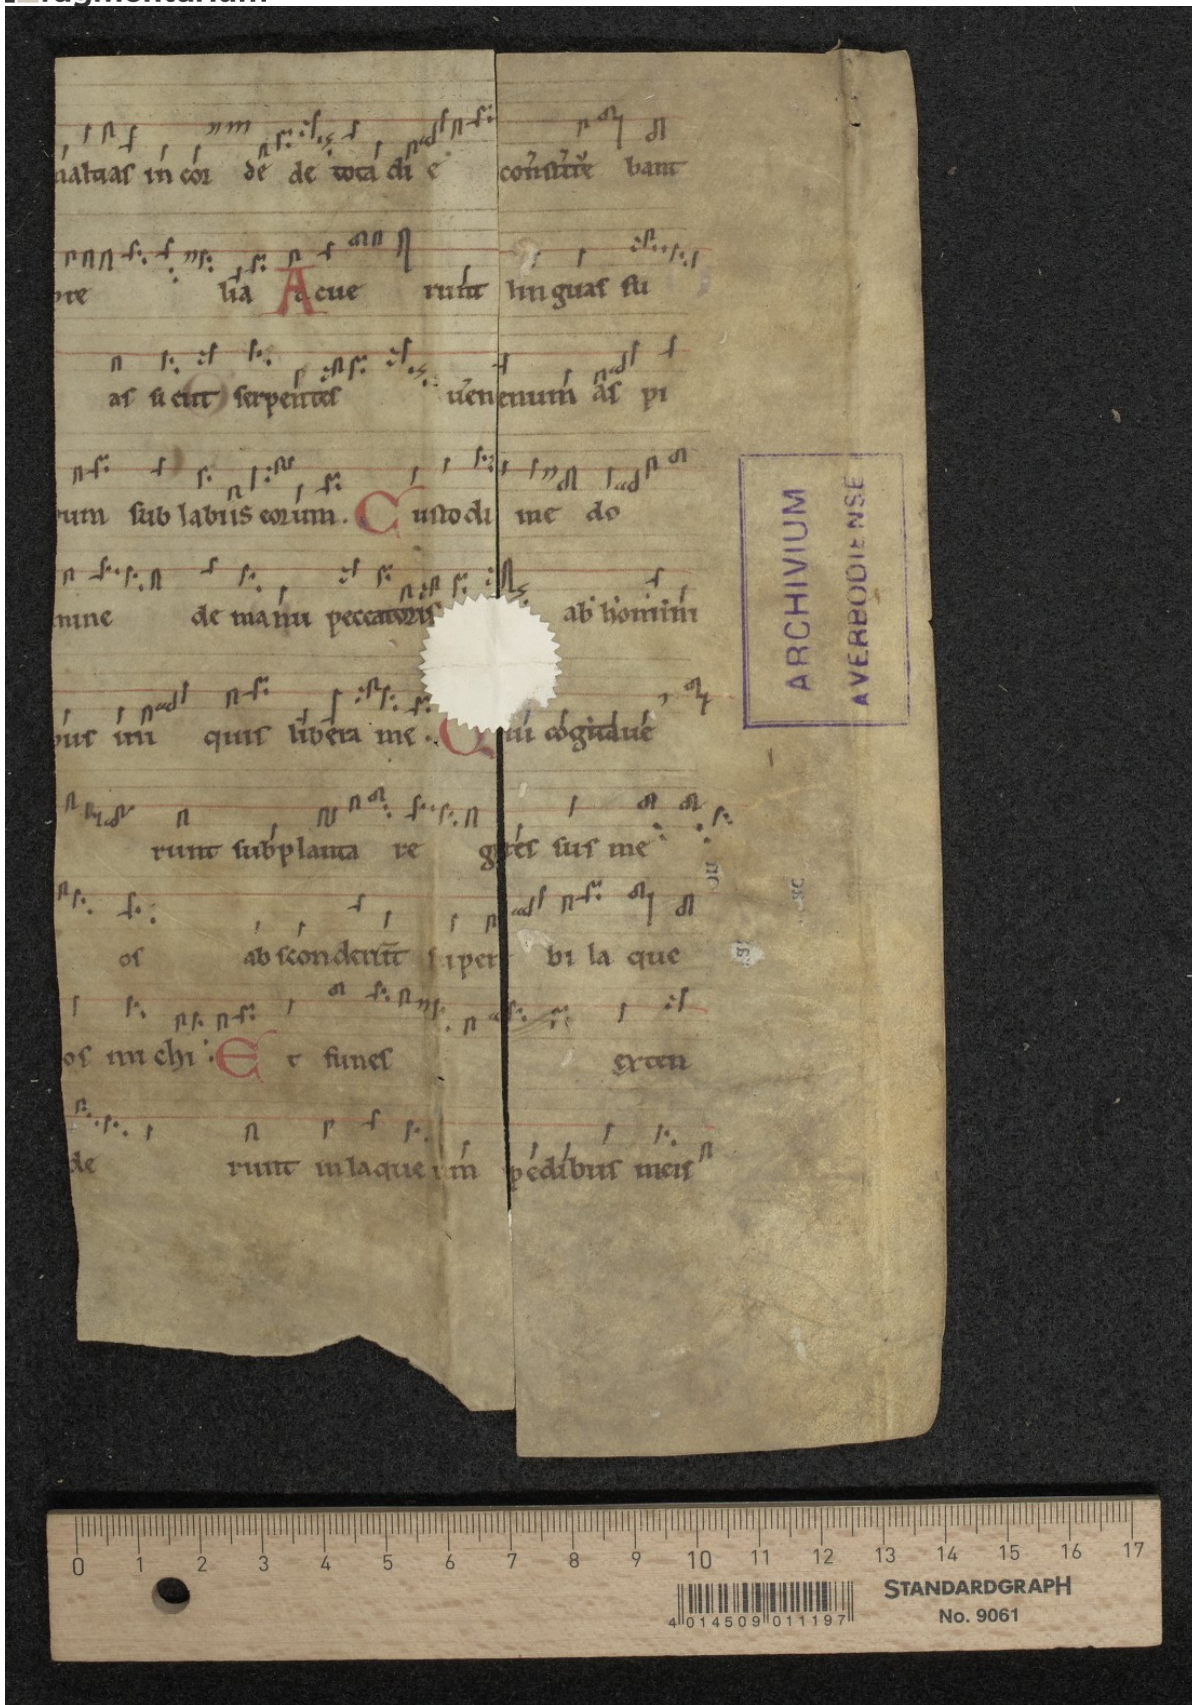 Fragmentarium
malitias in cor de de tota die constitue bant
pre lia Acue runt linguas su
as sicut serpentes uenenum as pi
rum sub labiis eorum. Custodi me do
mine de manu peccatoris ab homini
bus ini quis libera me. Qui cogitaue
runt subplanta re gres sus me
os absconderūt super bi la que
os mi chi Et funes exten
de runt in laqueum pedibus meis
ARCHIVIUM
AVERBODIENSE
0 1 2 3 4 5 6 7 8 9 10 11 12 13 14 15 16 17
STANDARDGRAPH
No. 9061
4 014509 011197